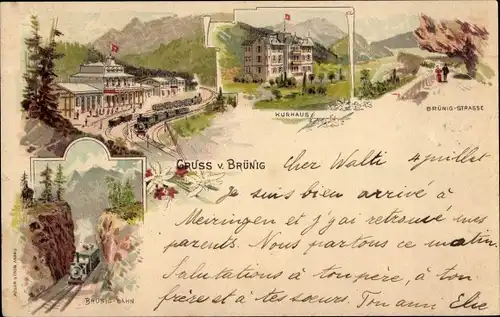 KURHAUS
BRÜNIG-STRASSE
GRUSS v. BRÜNIG
Cher Walti 4 juillet
Je suis bien arrivé à
Meiringen et j'y ai retrouvé mes
parents. Nous partons ce matin.
Salutations à ton père, à ton
frère et à tes sœurs. Ton ami Elie
BRÜNIG-BAHN